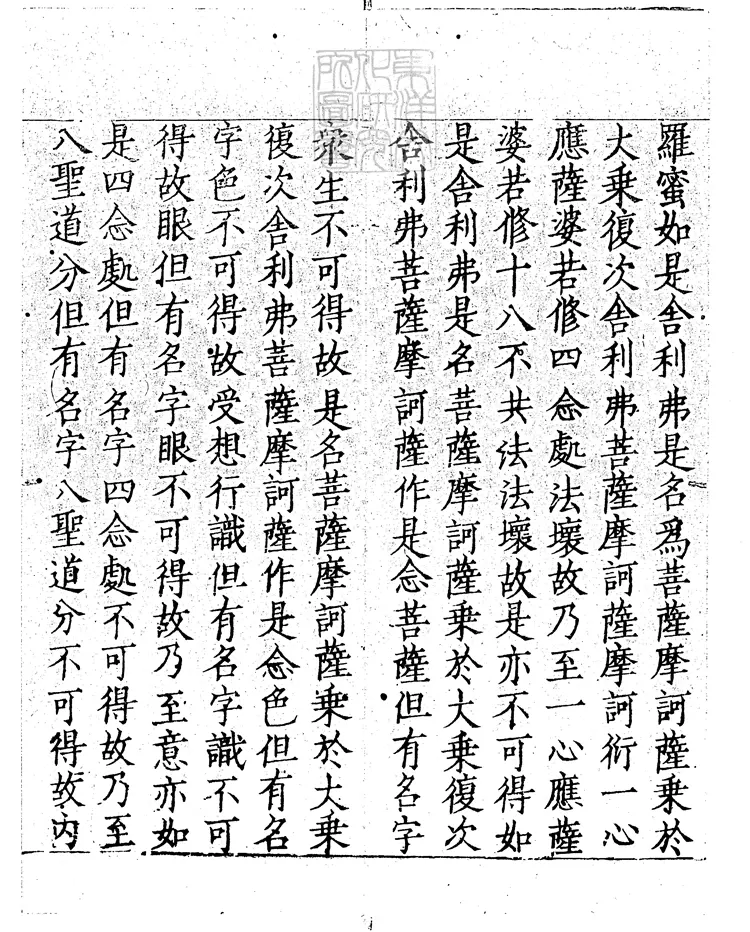 羅蜜如是舍利弗是名爲菩薩摩訶薩乗於
大乗復次舍利弗菩薩摩訶薩摩訶衍一心
應薩婆若修四念處法壞故乃至一心應薩
婆若修十八不共法法壞故是亦不可得如
是舍利弗是名菩薩摩訶薩乗於大乗復次
舍利弗菩薩摩訶薩作是念菩薩但有名字
衆生不可得故是名菩薩摩訶薩乗於大乗
復次舍利弗菩薩摩訶薩作是念色但有名
字色不可得故受想行識但有名字識不可
得故眼但有名字眼不可得故乃至意亦如
是四念處但有名字四念處不可得故乃至
八聖道分但有名字八聖道分不可得故内